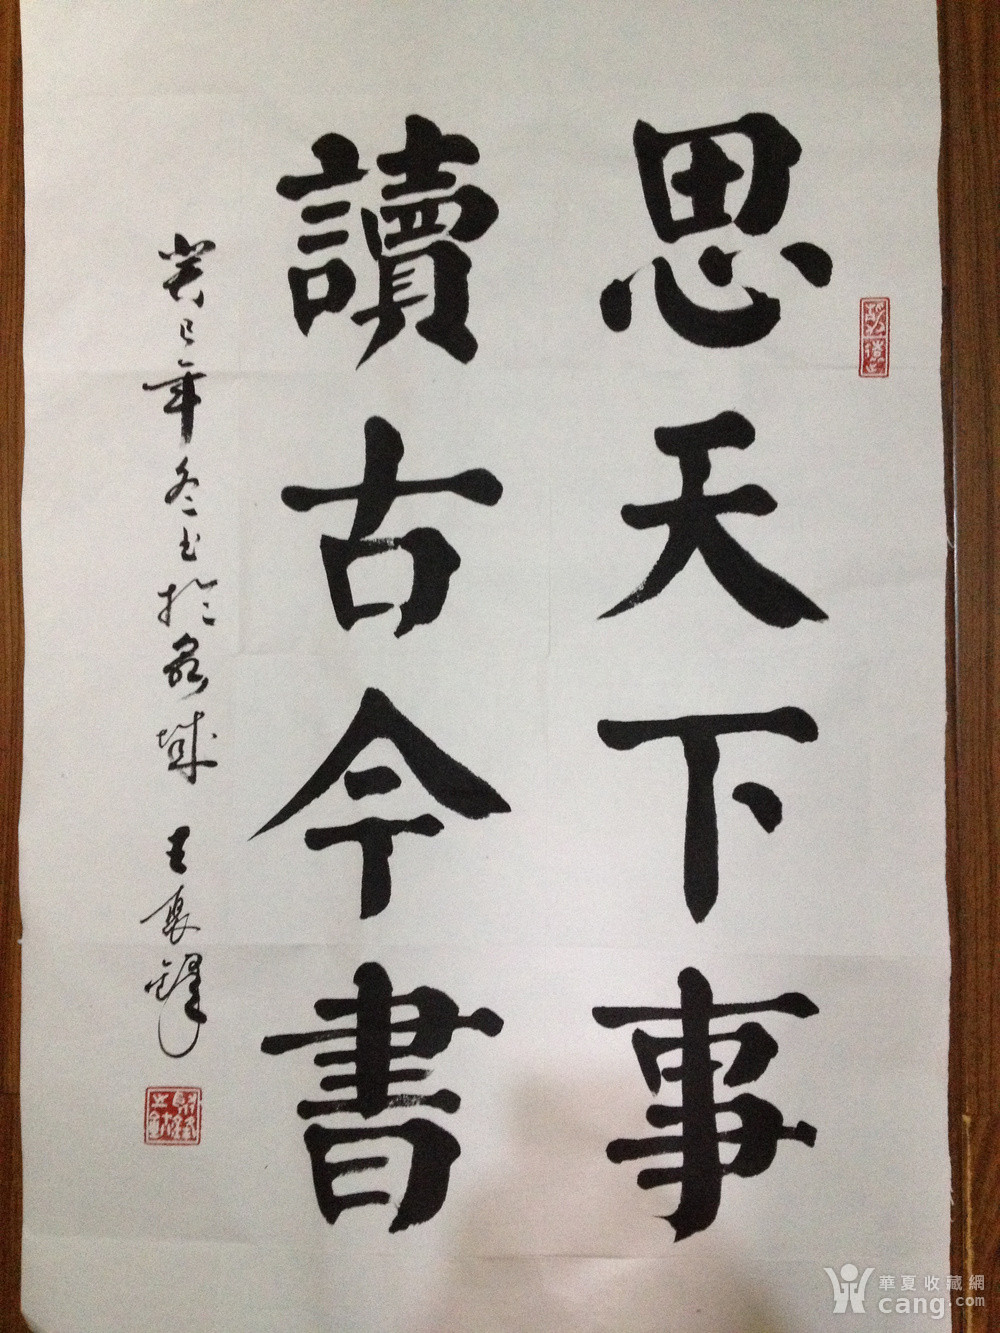 思天下事
讀古今書
癸巳年冬书於泉城 王
華夏收藏網
cang.com